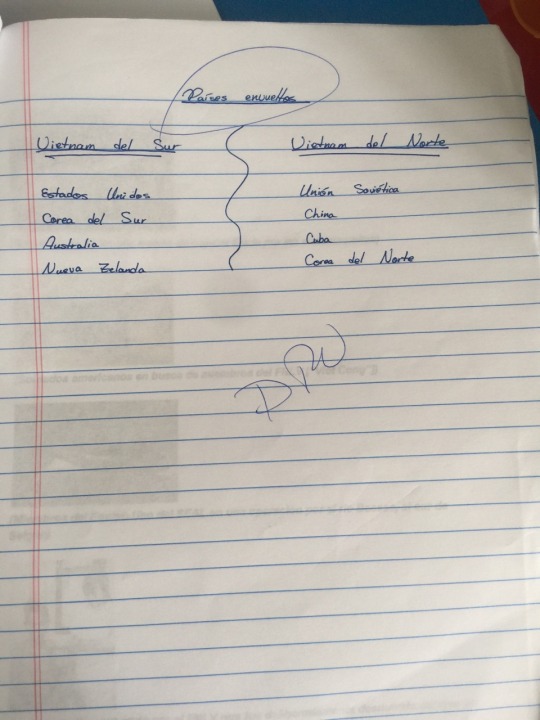 Países envueltos
Vietnam del Sur
Estados Unidos
Corea del Sur
Australia
Nueva Zelanda
Vietnam del Norte
Unión Soviética
China
Cuba
Corea del Norte